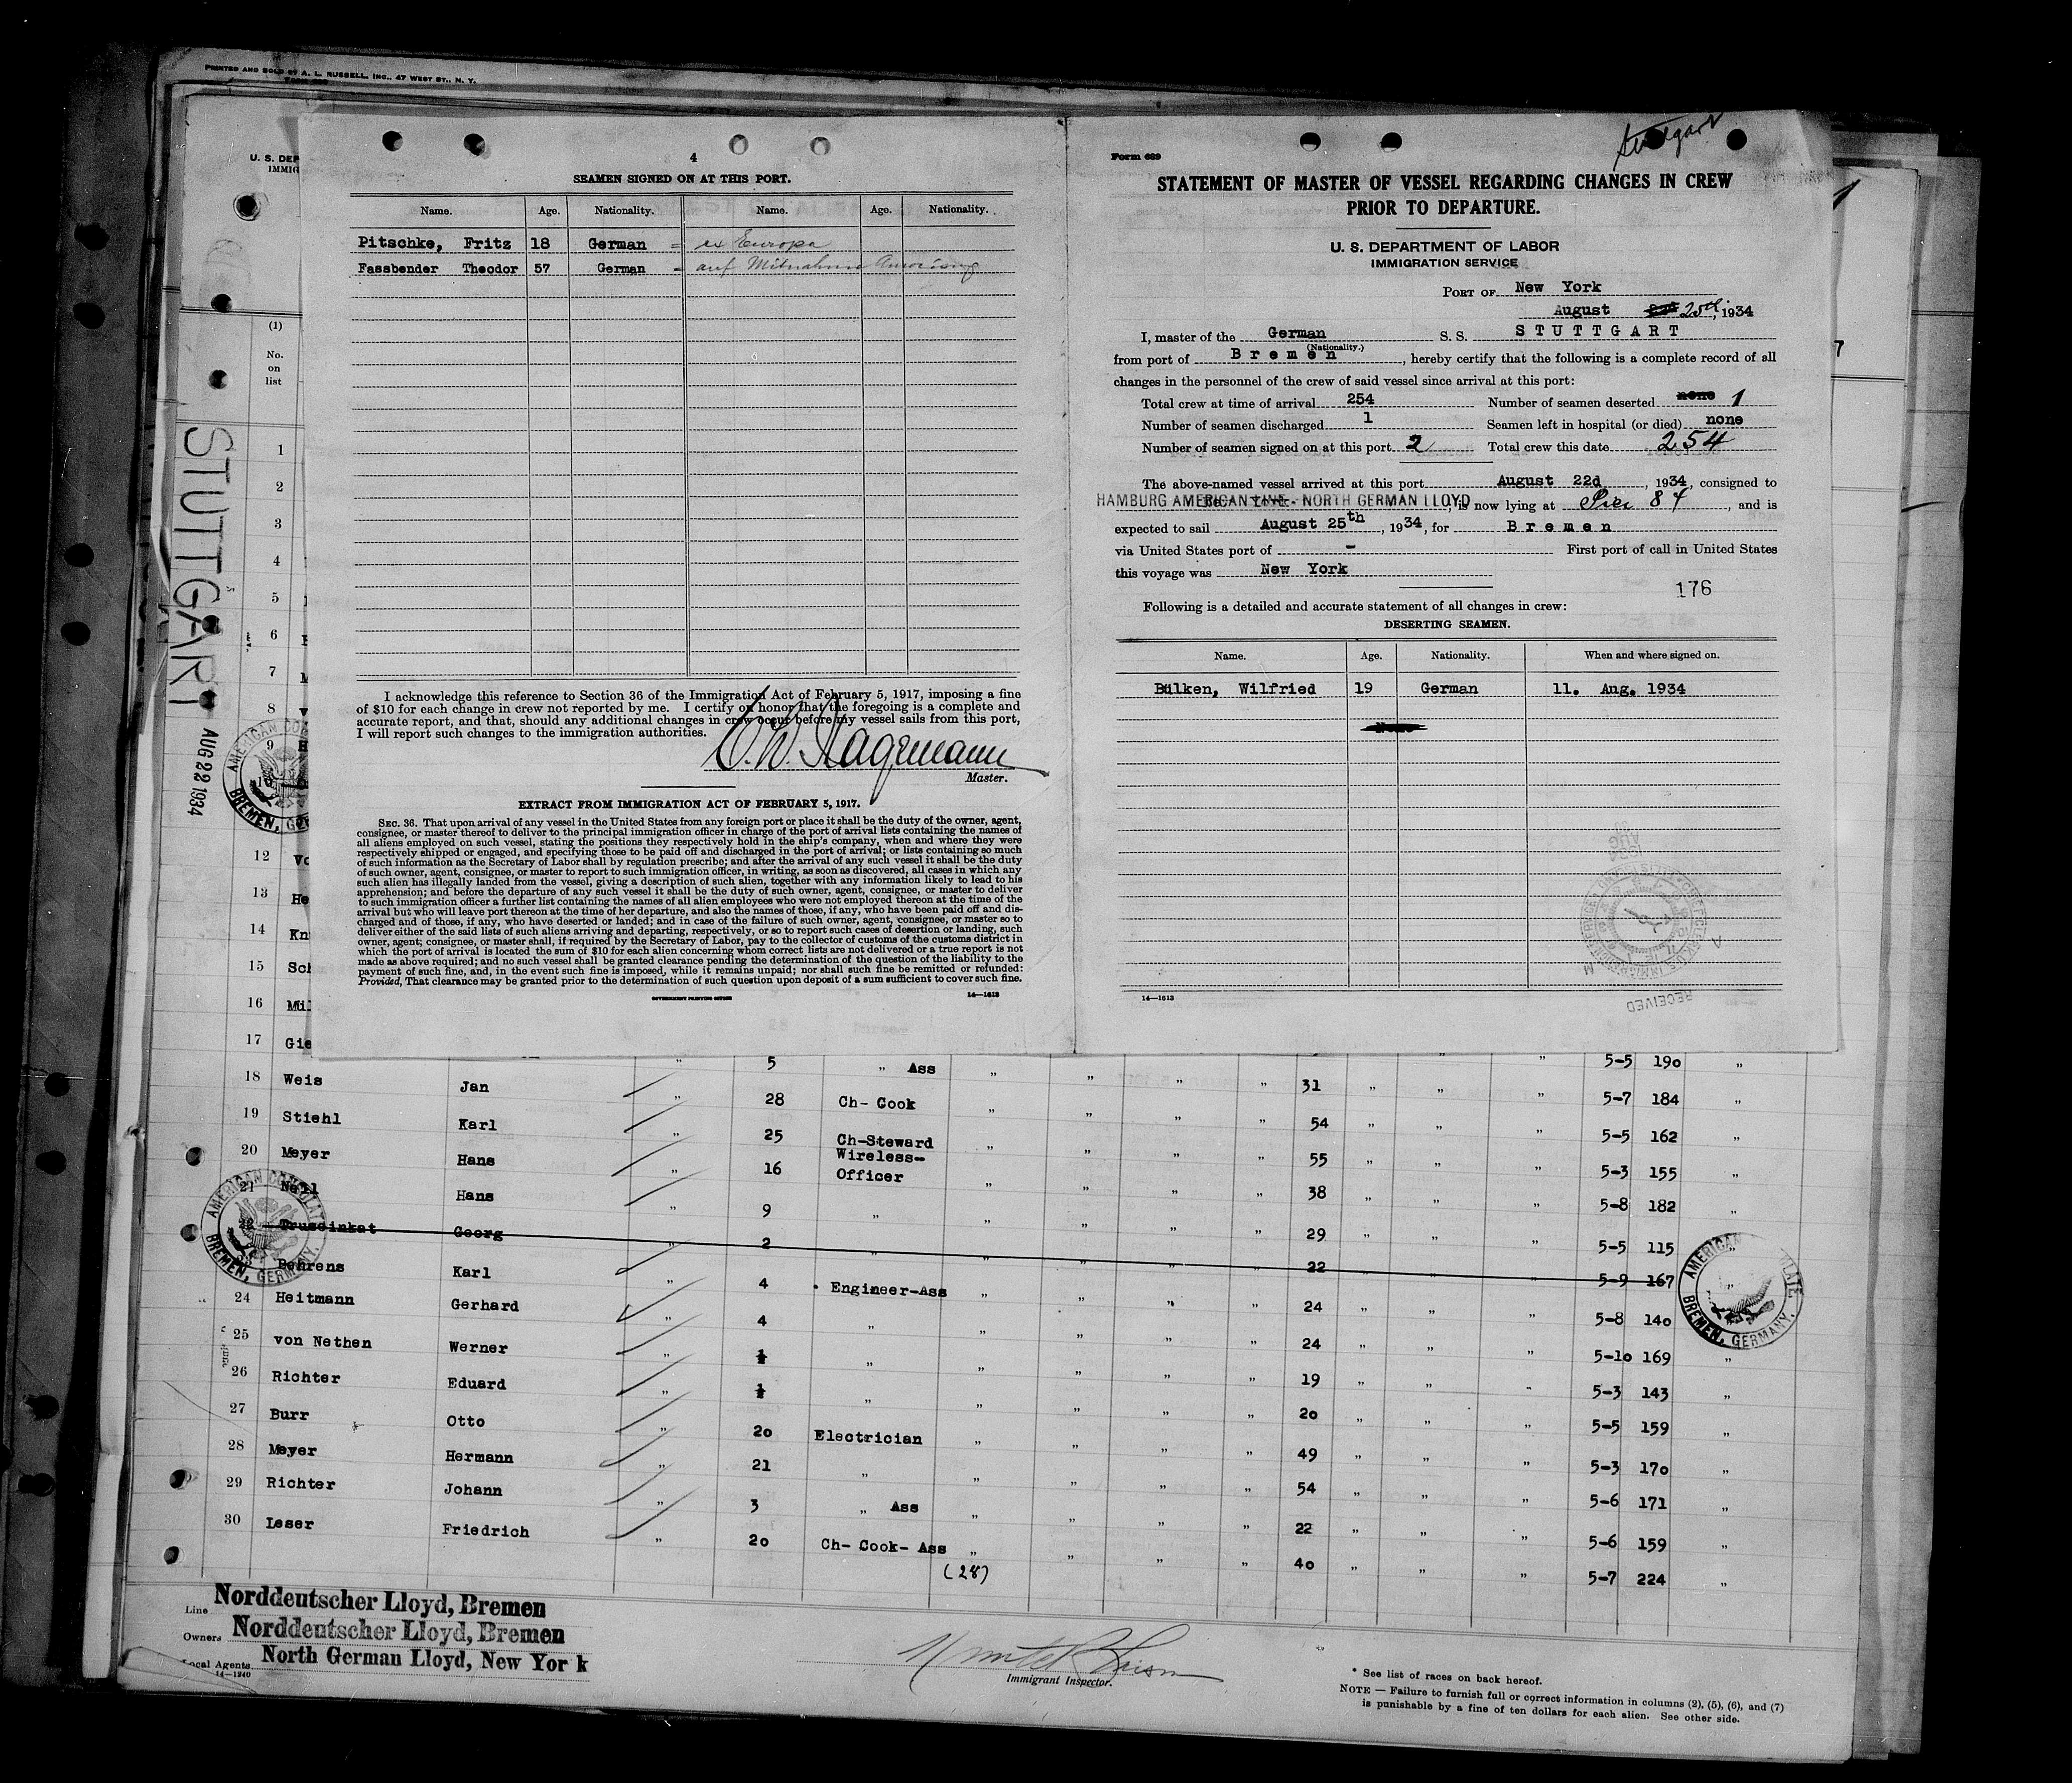 PRINTED AND SOLD BY A. L. RUSSELL, INC., 47 WEST ST., N. Y.
U. S. DEP
IMMIG
(1)
No.
on
list
STUTTGART
AUG 22 1934
4
SEAMEN SIGNED ON AT THIS PORT.
Name. Age. Nationality. Name. Age. Nationality.
Pitschke, Fritz 18 German = ex Europa
Fassbender Theodor 57 German = auf Mitnahme
I acknowledge this reference to Section 36 of the Immigration Act of February 5, 1917, imposing a fine
of $10 for each change in crew not reported by me. I certify on honor that the foregoing is a complete and
accurate report, and that, should any additional changes in crew occur before my vessel sails from this port,
I will report such changes to the immigration authorities.
O. W. Hagemann
Master.
EXTRACT FROM IMMIGRATION ACT OF FEBRUARY 5, 1917.
SEC. 36. That upon arrival of any vessel in the United States from any foreign port or place it shall be the duty of the owner, agent,
consignee, or master thereof to deliver to the principal immigration officer in charge of the port of arrival lists containing the names of
all aliens employed on such vessel, stating the positions they respectively hold in the ship's company, when and where they were
respectively shipped or engaged, and specifying those to be paid off and discharged in the port of arrival; or lists containing so much
of such information as the Secretary of Labor shall by regulation prescribe; and after the arrival of any such vessel it shall be the duty
of such owner, agent, consignee, or master to report to such immigration officer, in writing, as soon as discovered, all cases in which any
such alien has illegally landed from the vessel, giving a description of such alien, together with any information likely to lead to his
apprehension; and before the departure of any such vessel it shall be the duty of such owner, agent, consignee, or master to deliver
to such immigration officer a further list containing the names of all alien employees who were not employed thereon at the time of the
arrival but who will leave port thereon at the time of her departure, and also the names of those, if any, who have been paid off and dis-
charged and of those, if any, who have deserted or landed; and in case of the failure of such owner, agent, consignee, or master so to
deliver either of the said lists of such aliens arriving and departing, respectively, or so to report such cases of desertion or landing, such
owner, agent; consignee, or master shall, if required by the Secretary of Labor, pay to the collector of customs of the customs district in
which the port of arrival is located the sum of $10 for each alien concerning whom correct lists are not delivered or a true report is not
made as above required; and no such vessel shall be granted clearance pending the determination of the question of the liability to the
payment of such fine, and, in the event such fine is imposed, while it remains unpaid; nor shall such fine be remitted or refunded:
Provided, That clearance may be granted prior to the determination of such question upon deposit of a sum sufficient to cover such fine.
GOVERNMENT PRINTING OFFICE 14—1613
Stuttgart
Form 689
STATEMENT OF MASTER OF VESSEL REGARDING CHANGES IN CREW
PRIOR TO DEPARTURE.
U. S. DEPARTMENT OF LABOR
IMMIGRATION SERVICE
PORT OF New York
August 25th, 1934
I, master of the German S. S. STUTTGART
(Nationality.)
from port of Bremen, hereby certify that the following is a complete record of all
changes in the personnel of the crew of said vessel since arrival at this port:
Total crew at time of arrival 254 Number of seamen deserted none 1
Number of seamen discharged 1 Seamen left in hospital (or died) none
Number of seamen signed on at this port 2 Total crew this date 254
The above-named vessel arrived at this port August 22d, 1934, consigned to
HAMBURG AMERICAN LINE - NORTH GERMAN LLOYD, is now lying at Pier 84, and is
expected to sail August 25th, 1934, for Bremen
via United States port of - First port of call in United States
this voyage was New York
176
Following is a detailed and accurate statement of all changes in crew:
DESERTING SEAMEN.
Name. Age. Nationality. When and where signed on.
Bülken, Wilfried 19 German 11. Aug. 1934
None
RECEIVED
14—1613
1
2
3
4
5
6
7
8
9
12 Vo
13 He
14 Kn
15 Sch
16 Mil
17 Gie 5 " Ass " " " " 31 " " " 5-5 190 "
18 Weis Jan " 28 Ch- Cook " " " " 54 " " " 5-7 184 "
19 Stiehl Karl " 25 Ch-Steward " " " " 55 " " " 5-5 162 "
20 Meyer Hans " 16 Wireless-
Officer " " " " 38 " " " 5-3 155 "
21 Noll Hans " 9 " " " " " 29 " " " 5-8 182 "
22 Truseinkat Georg " 2 " " " " " 22 " " " 5-5 115 "
Behrens Karl " 4 Engineer-Ass " " " " 24 " " " 5-9 167 "
24 Heitmann Gerhard " 4 " " " " " 24 " " " 5-8 140 "
25 von Nethen Werner " " " " " " 19 " " " 5-10 169 "
26 Richter Eduard " " " " " " 20 " " " 5-3 143 "
27 Burr Otto " 20 Electrician " " " " 49 " " " 5-5 159 "
28 Meyer Hermann " 21 " " " " " 54 " " " 5-3 170 "
29 Richter Johann " 3 " Ass " " " " 22 " " " 5-6 171 "
30 Leser Friedrich " 20 Ch- Cook- Ass " " " " 40 " " " 5-6 159 "
(28) 5-7 224 "
AMERICAN CONSULATE
BREMEN, GERMANY.
AMERICAN CONSULATE
BREMEN, GERMANY.
AMERICAN CONSULATE
BREMEN, GERMANY.
Line Norddeutscher Lloyd, Bremen
Owners Norddeutscher Lloyd, Bremen
Local Agents North German Lloyd, New York
14—1240
Immigrant Inspector.
* See list of races on back hereof.
NOTE — Failure to furnish full or correct information in columns (2), (5), (6), and (7)
is punishable by a fine of ten dollars for each alien. See other side.